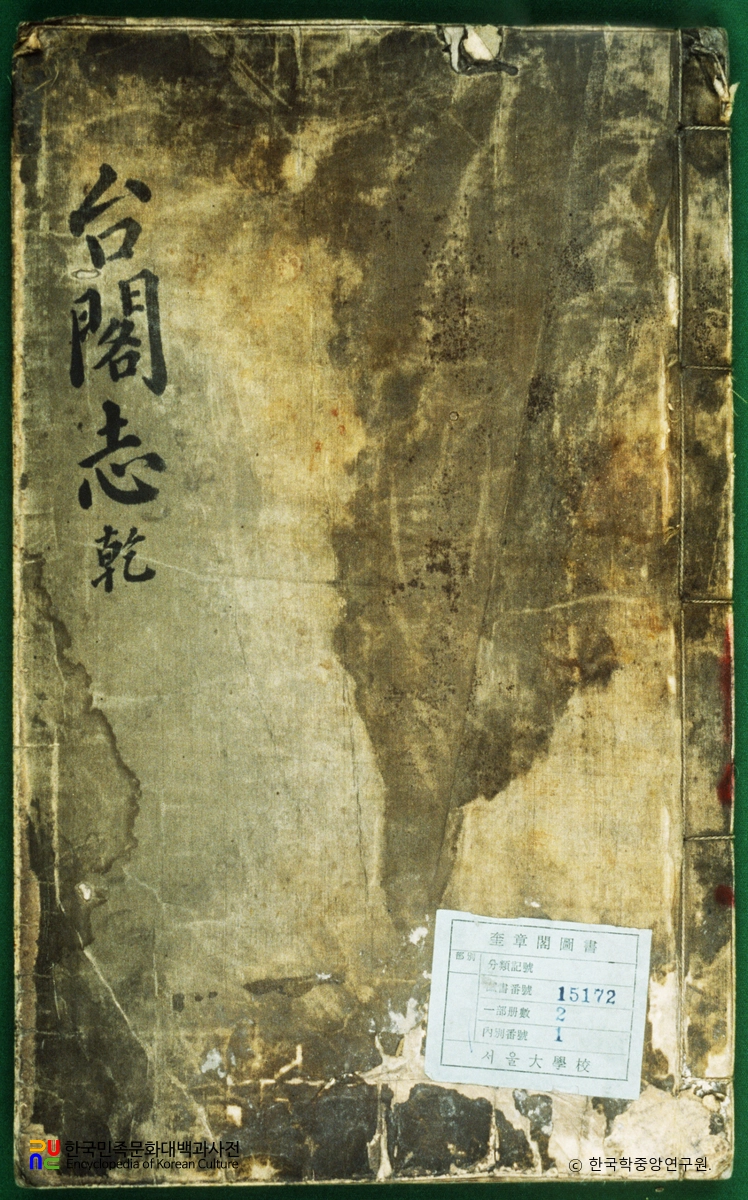 台閣志 乾
奎章閣圖書
部別
分類記號
圖書番號 15172
一部册數 2
內別番號 1
서울大學校
한국민족문화대백과사전
Encyclopedia of Korean Culture
© 한국학중앙연구원.